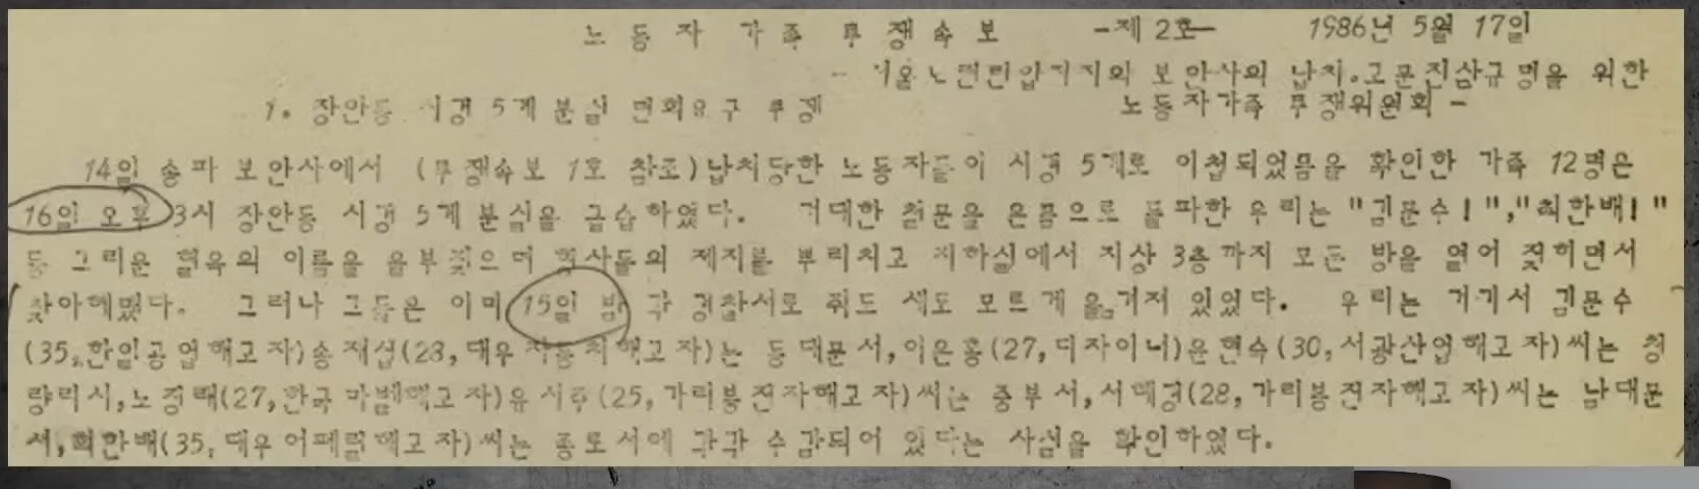 노동자 가족 투쟁속보 -제2호- 1986년 5월 17일
- 서울노련탄압저지와 보안사의 납치.고문진상규명을 위한
노동자가족 투쟁위원회 -
1. 장안동 시경 5계 분실 면회요구 투쟁
14일 송파 보안사에서 (투쟁속보 1호 참조)납치당한 노동자들이 시경 5계로 이첩되었음을 확인한 가족 12명은
16일 오후 3시 장안동 시경 5계 분실을 급습하였다. 거대한 철문을 온몸으로 돌파한 우리는 "김문수!","최한배!"
등 그리운 혈육의 이름을 울부짖으며 형사들의 제지를 뿌리치고 지하실에서 지상 3층까지 모든 방을 열어 젖히면서
찾아헤맸다. 그러나 그들은 이미 15일 밤 각 경찰서로 쥐도 새도 모르게 옮겨져 있었다. 우리는 거기서 김문수
(35,한일공업해고자)송재섭(28,대우자동차해고자)는 동대문서,이은홍(27,디자이너)윤현숙(30,서광산업해고자)씨는 청
량리서,노정래(27,한국마벨해고자)유시주(25,가리봉전자해고자)씨는 중부서,서혜경(28,가리봉전자해고자)씨는 남대문
서,최한배(35,대우어패럴해고자)씨는 종로서에 각각 수감되어 있다는 사실을 확인하였다.